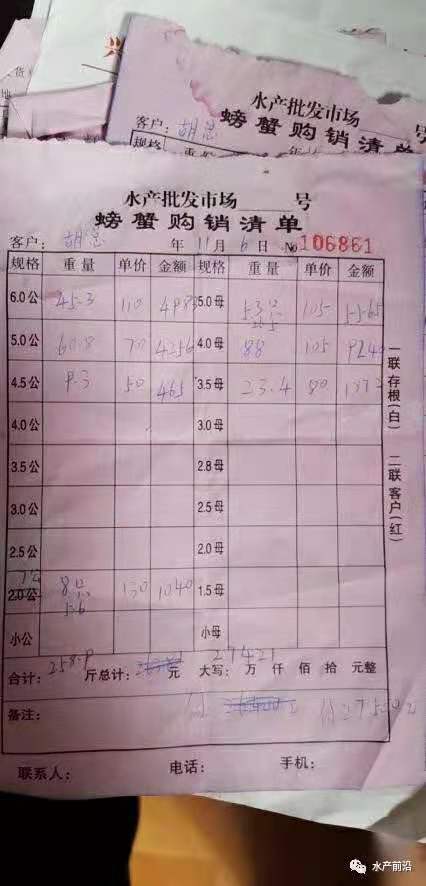 水产批发市场 号
客户：胡总 螃蟹购销清单
规格 重量
水产批发市场 号
螃蟹购销清单
客户：胡总 年 11 月 6 日 No 106861
规格 重量 单价 金额 规格 重量 单价 金额
6.0公 45.3 110 4983 5.0母 53 105 5565
5.0公 60.8 70 4256 4.0母 88 105 9240
4.5公 9.3 50 465 3.5母 23.4 80 1872
4.0公 3.0母
3.5公 2.8母
3.0公 2.5母
2.5公 2.0母
2.0公 8 130 1040 1.5母
小公 小母
合计：258.9 斤总计： 元 大写：27421 万 仟 佰 拾 元整
备注：
联系人： 电话： 手机：
一联存根(白) 二联客户(红)
水产前沿